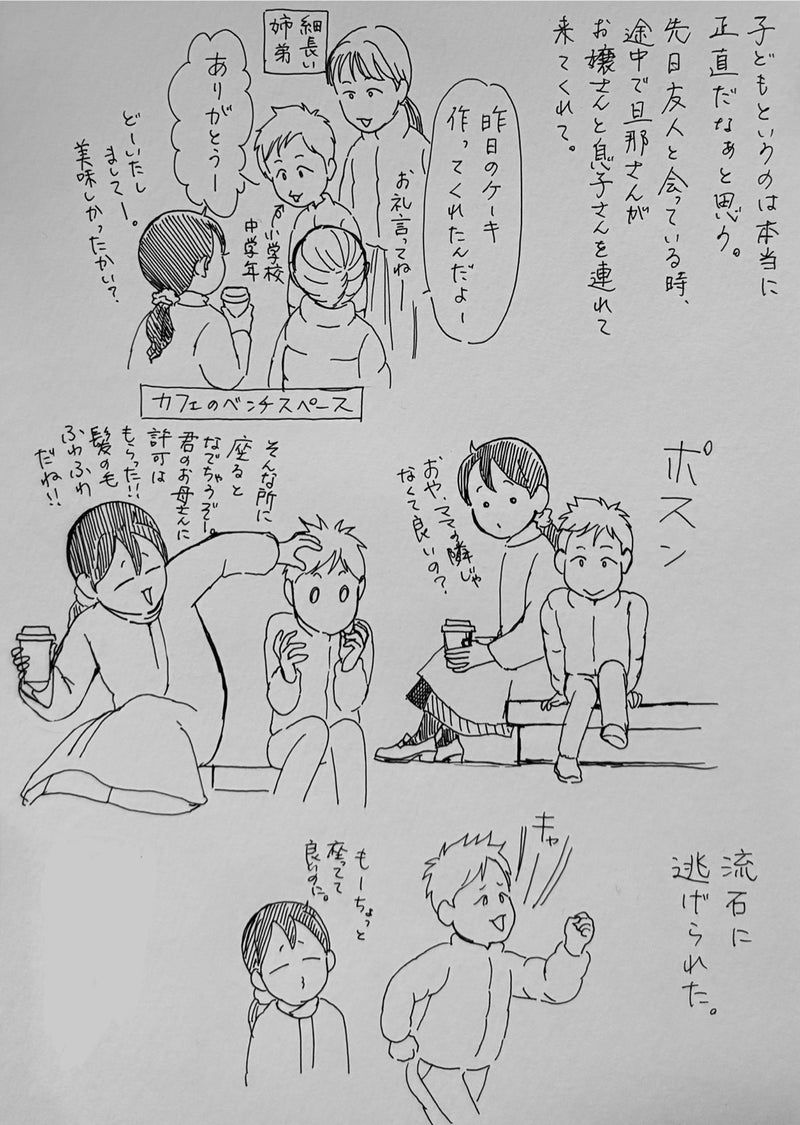 子どもというのは本当に
正直だなぁと思う。
先日友人と会っている時、
途中で旦那さんが
お嬢さんと息子さんを連れて
来てくれて。
昨日のケーキ
作ってくれたんだよー
お礼言ってねー
細長い
姉弟
ありがとうー
小学校
中学年
どーいたし
ましてー。
美味しかったかい？
カフェのベンチスペース
ポスン
おや、ママの隣じゃ
なくて良いの？
そんな所に
座ると
なでちゃうぞー。
君のお母さんに
許可は
もらった!!
髪の毛
ふわふわ
だね!!
流石に
逃げられた。
キャ
もーちょっと
座ってて
良いのに。